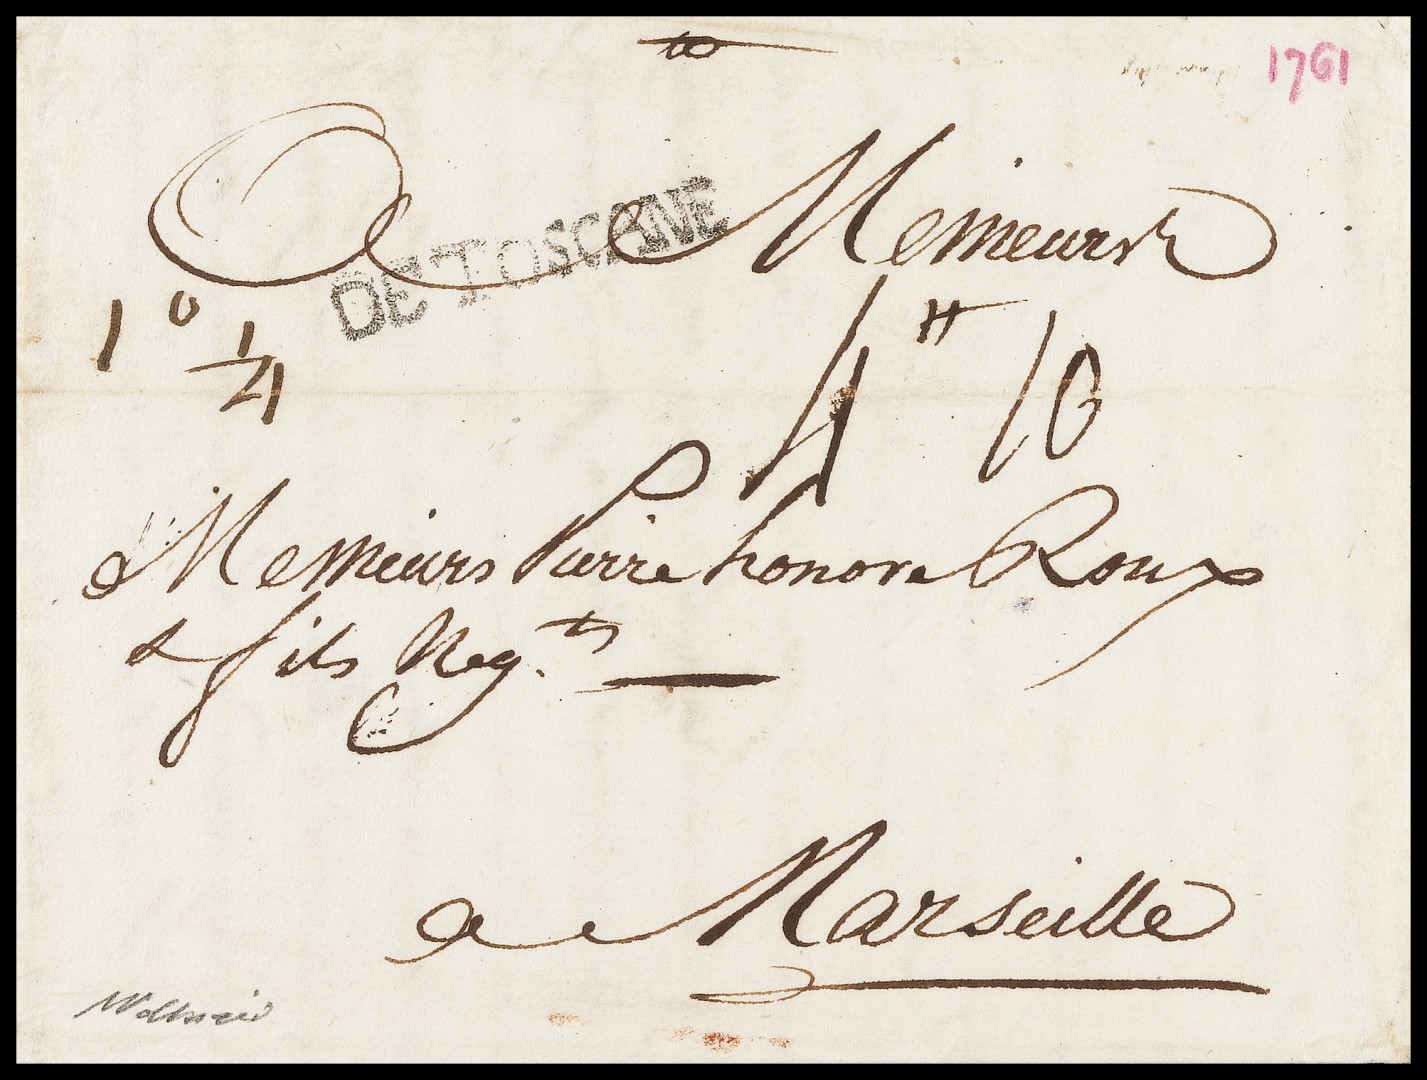 1761
A Messieurs
DE TOSCANE
1º 1/4
4 ₶ 10
Messieurs Pierre honoré Roux
& fils Neg.ts
a Marseille